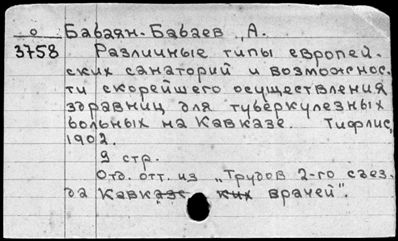 о Бабаян-Бабаев, А.
3758 Различные типы европей-
ских санаторий и возможнос-
ти скорейшего осуществления
здравниц для туберкулезных
больных на Кавказе. Тифлис,
1902.
9 стр.
Отд. отт. из „Трудов 2-го съез-
да Кавказских врачей".